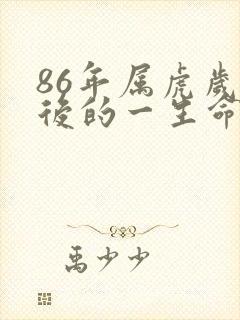 86年属虎歲
後的一生命
禹少少